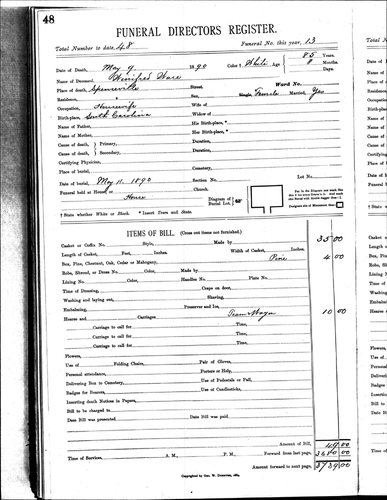 48
FUNERAL DIRECTORS REGISTER.
Total Number to date, 48 Funeral No. this year, 13
Date of Death, May 9 1890 Color † White Age 85 Years.
8 Months.
Days.
Name of Deceased, Winifred Ware
Place of death, Spenceville Street, Ward No.
Residence, " Sex, Single, Female Married, Yes
Occupation, Housewife Wife of
Birth-place, South Carolina Widow of
Name of Father, His Birth-place, *
Name of Mother, Her Birth-place, *
Cause of death, } Primary, Duration,
Cause of death, } Secondary, Duration,
Certifying Physician,
Place of burial, Cemetery,
Date of burial, May 11, 1890 Section No. Lot No.
Funeral held at House or Church.
House
Diagram of Burial Lot.
† State whether White or Black. * Insert Town and State.
ITEMS OF BILL. (Cross out items not furnished.)
Casket or Coffin No. Style, Made by 35 00
Length of Casket, Feet, Inches. Width of Casket, Inches.
Box, Pine, Chestnut, Oak, Cedar or Mahogany, Pine 4 00
Robe, Shroud, or Dress No. Color, Made by
Lining No. Color, Handles No. Plate No.
Time of Dressing, Crape on door,
Washing and laying out, Sharing,
Embalming, Preserver and Ice,
Hearse and Carriages Team & Wagon 10 00
Carriage to call for Time,
Carriage to call for Time,
Carriage to call for Time,
Carriage to call for Time,
Flowers,
Use of Folding Chairs, Pair of Gloves,
Personal attendance, Porters or Help,
Delivering Box to Cemetery, Use of Pedestals or Pall,
Badges for Bearers, Use of Candlesticks,
Inserting death Notices in Papers,
Bill to be charged to
Date Bill was presented Date Bill was paid
Amount of Bill, 49 00
Time of Services, A. M., P. M., Forward from last page, 3680 00
Amount forward to next page, $3729 00